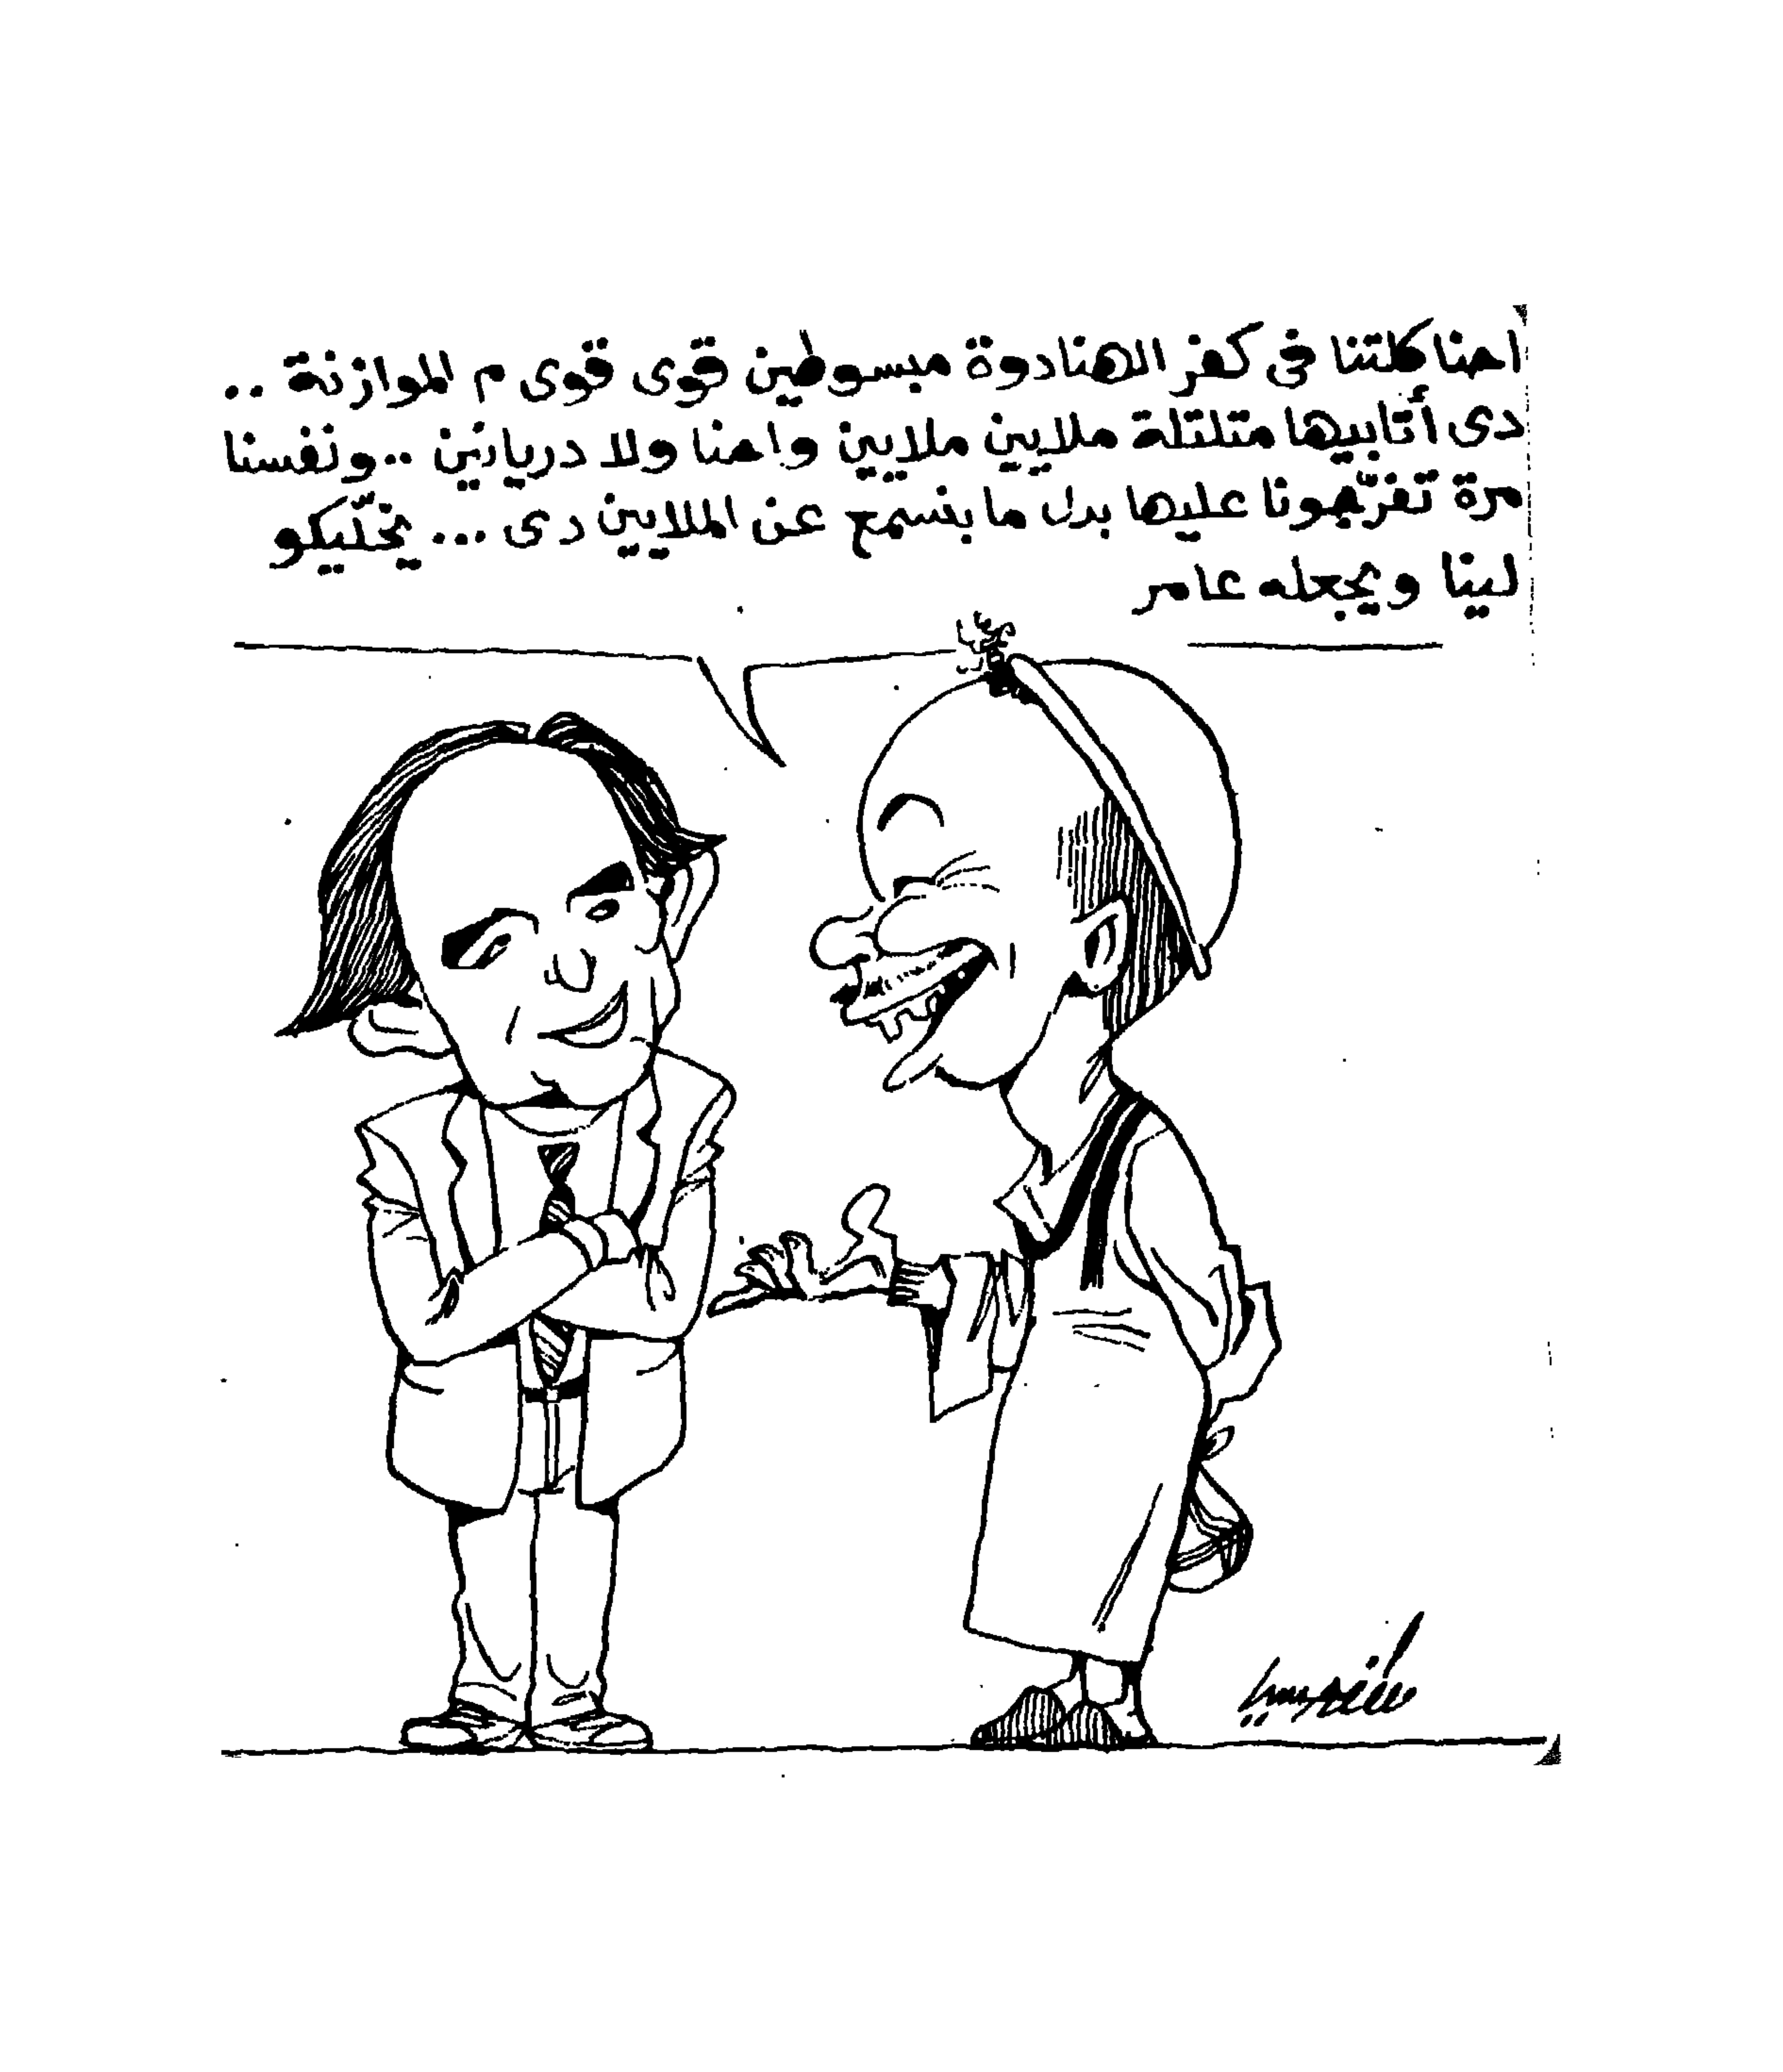 احنا كلتنا فى كفر الهنادوة مبسوطين قوى قوى م الموازنة ..
دى أتابيها متلتلة ملايين ملايين واحنا ولا دريانين .. ونفسنا
مرة تفرّجونا عليها بدل ما بنسمع عن الملايين دى ... يخلّيكو
لينا ويجعله عامر